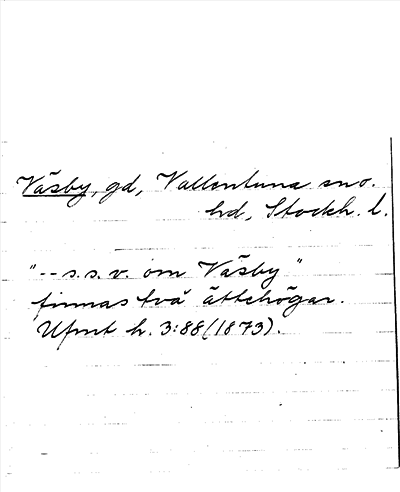 Väsby, gd, Vallentuna sn o.
hd, Stockh. l.
"-- s.s.v. om Väsby"
finnas två ättehögar.
Ufmt h. 3:88 (1873).